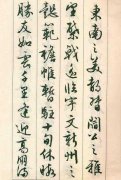 東南之美都督閻公之雅
望棨戟遙臨宇文新州之
懿範襜帷暫駐十旬休暇
勝友如雲千里逢迎高朋滿